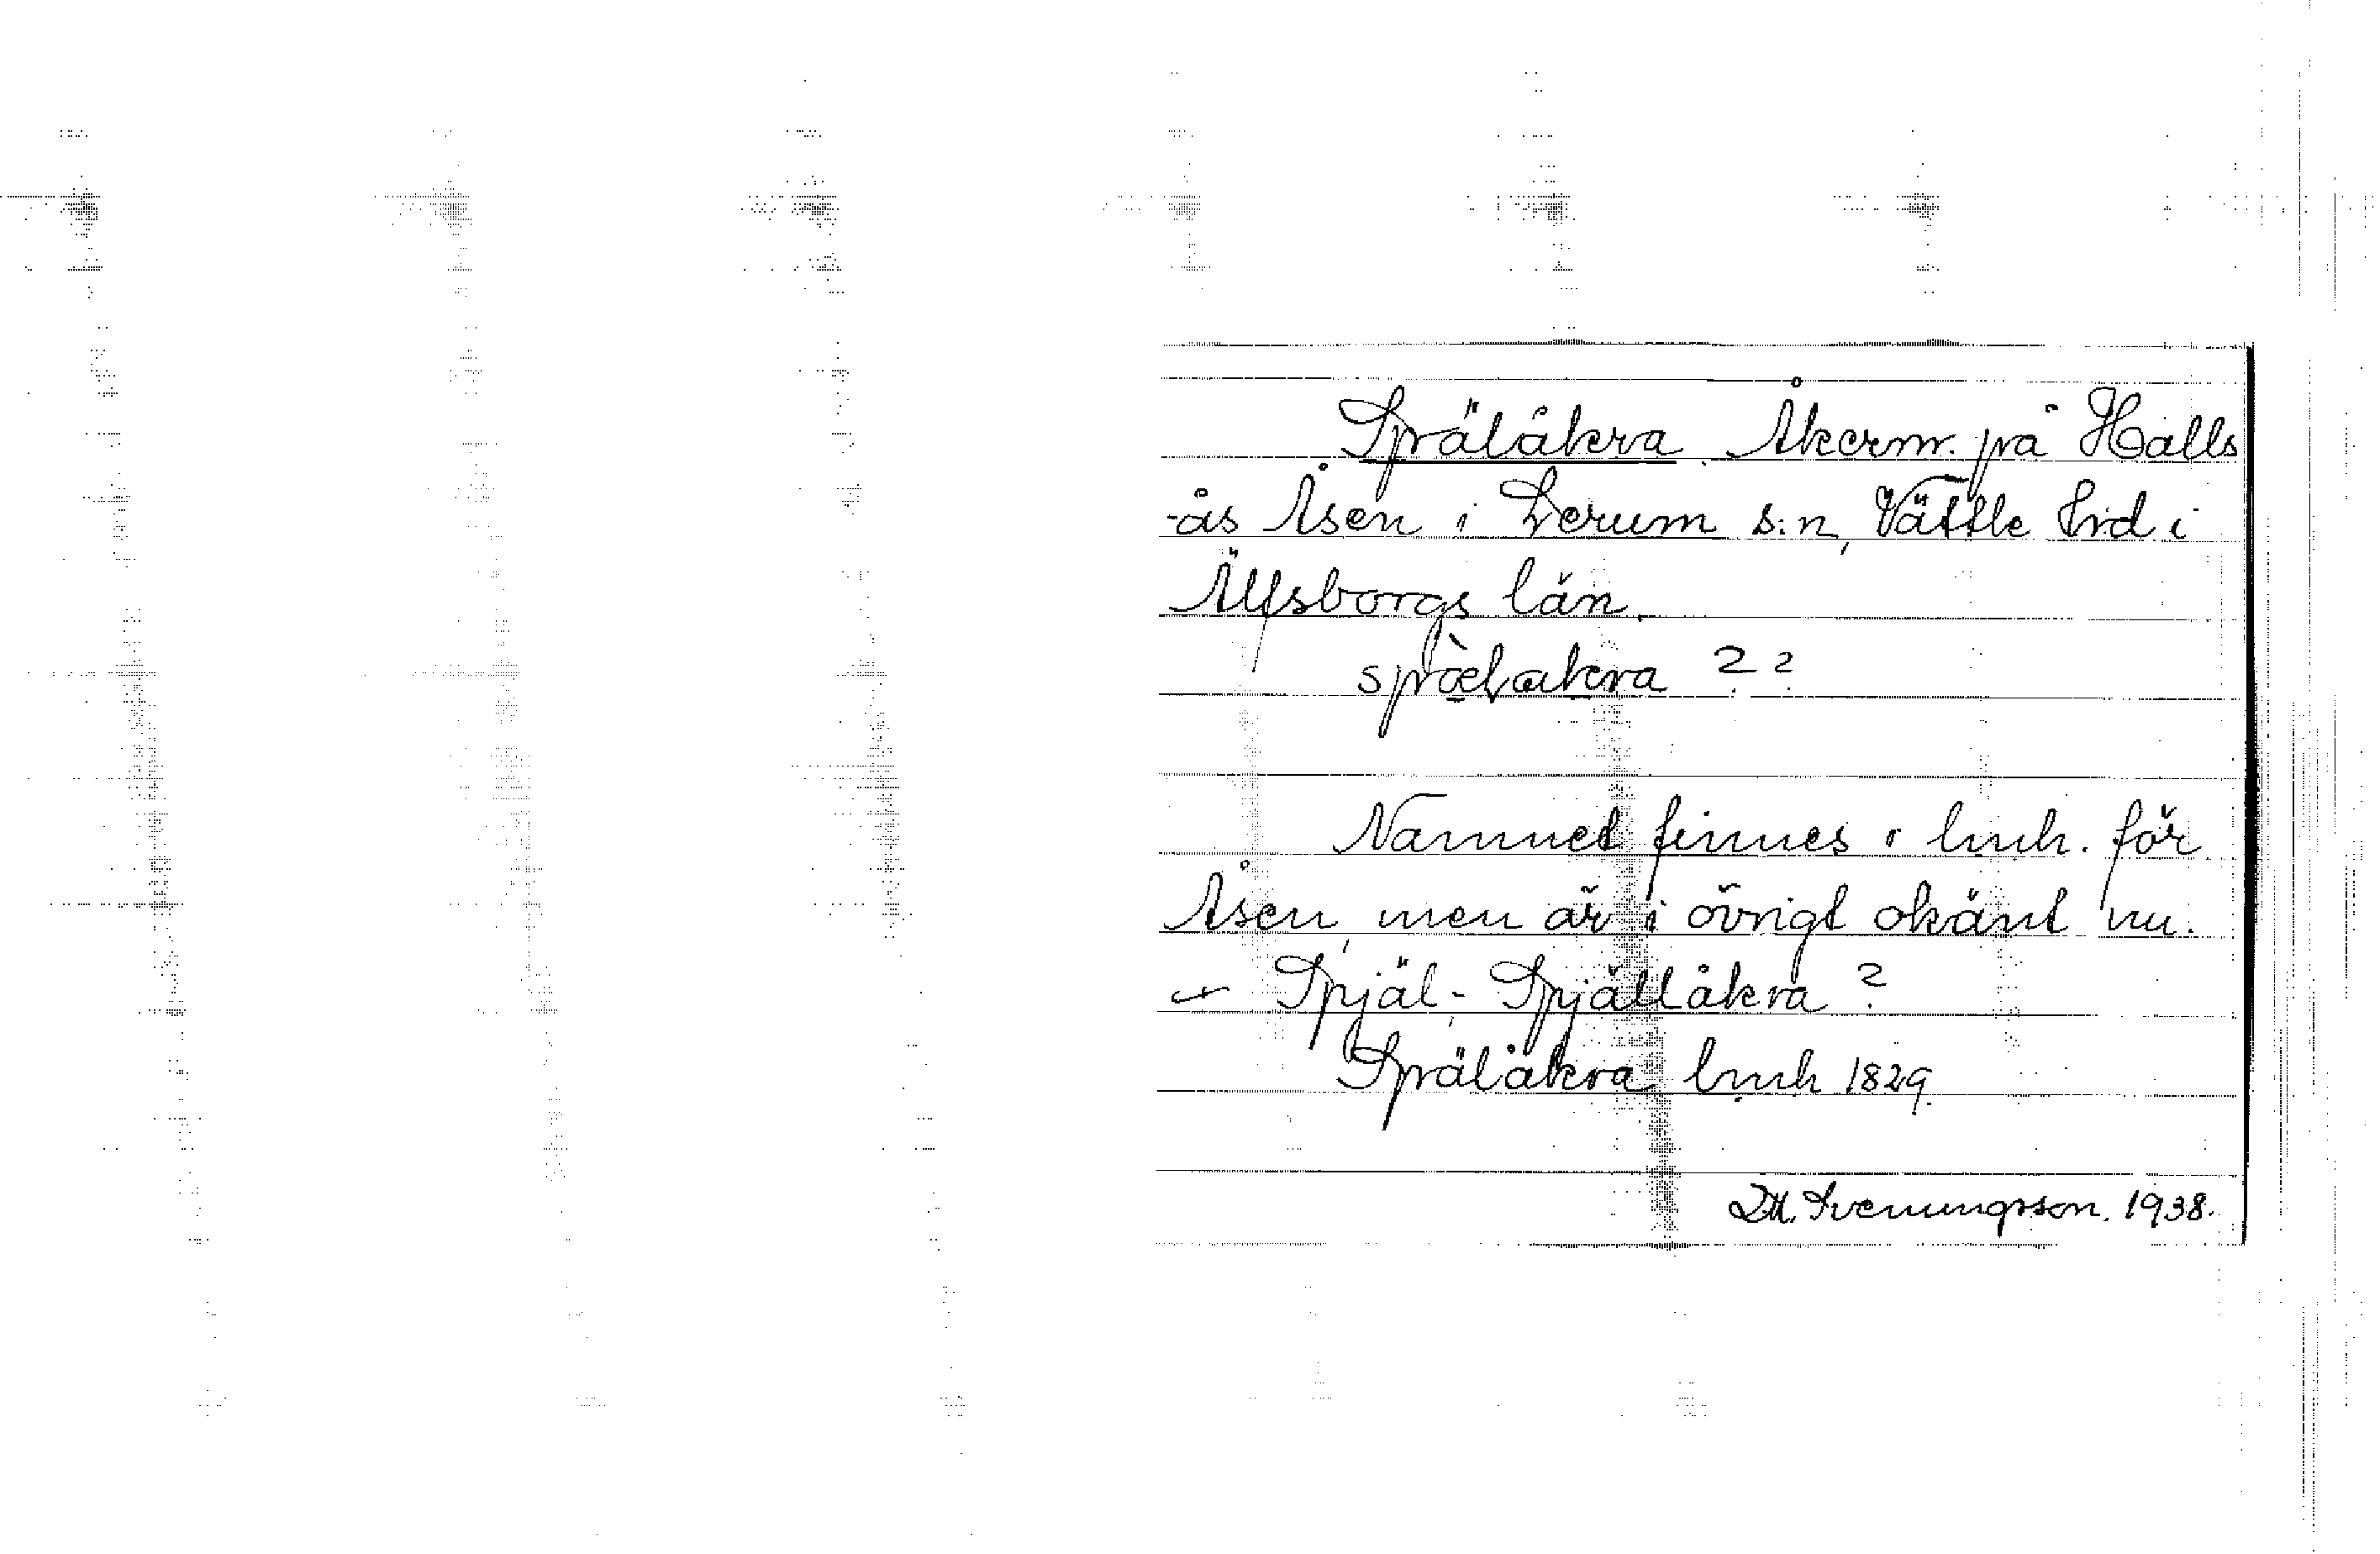 Spräläkra. Åkernr. på Halls
-ås Åsen i Lerum s:n, Vättle hd i
Älfsborgs län.
sprælakra ? ?
Namnet finnes i lmh. för
Åsen, men är i övrigt okänt nu.
Spjäl-, Spjällåkra ?
Sprälåkra lmh 1829.
D.H. Svenungsson. 1938.